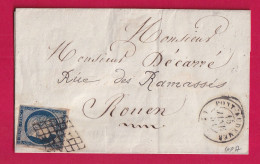 Monsieur
Monsieur Décarré
Rue des Ramassés
Rouen
PONT-AUDEMER